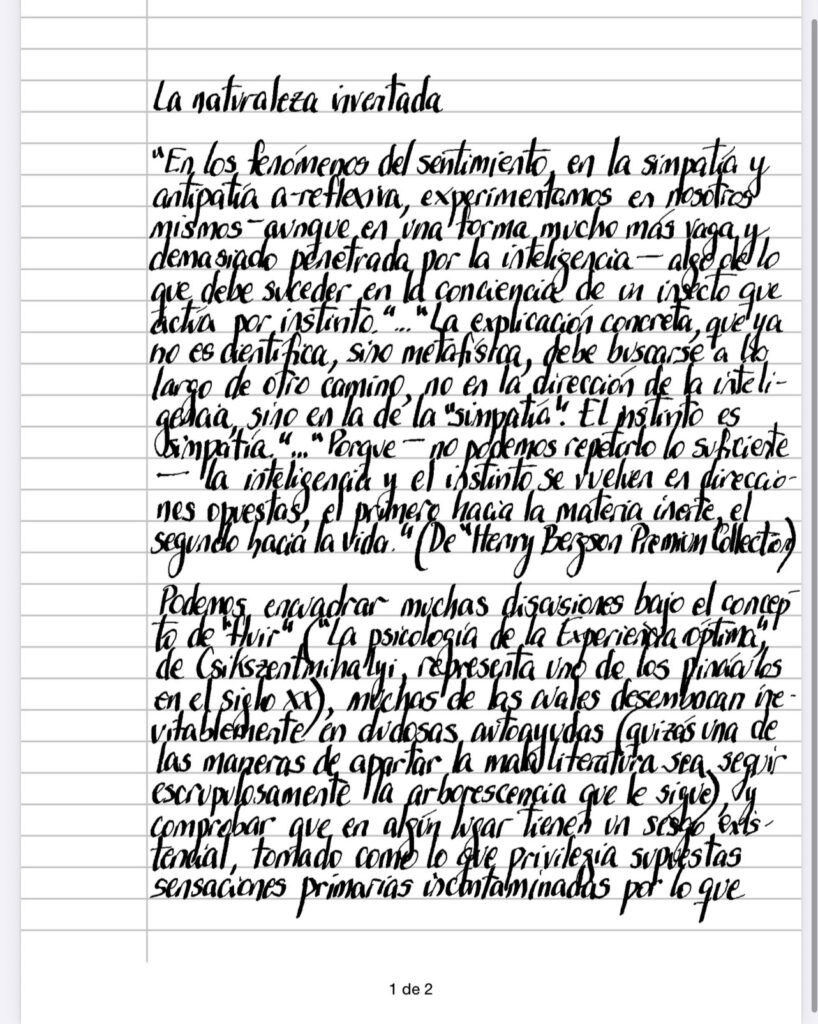 La naturaleza inventada
"En los fenómenos del sentimiento, en la simpatía y
antipatía a-reflexiva, experimentamos en nosotros
mismos - aunque en una forma mucho más vaga y
demasiado penetrada por la inteligencia - algo de lo
que debe suceder en la conciencia de un insecto que
actúa por instinto."..."La explicación concreta, que ya
no es científica, sino metafísica, debe buscarse a lo
largo de otro camino, no en la dirección de la inteli-
gencia, sino en la de la "simpatía". El instinto es
simpatía."..."Porque - no podemos repetirlo lo suficiente
- la inteligencia y el instinto se vuelven en direccio-
nes opuestas, el primero hacia la materia inerte, el
segundo hacia la vida." (De "Henry Bergson Premium Collection)
Podemos encuadrar muchas discusiones bajo el concep-
to de "fluir" ("La psicología de la Experiencia óptima",
de Csikszentmihalyi, representa uno de los pináculos
en el siglo XX), muchas de las cuales desembocan ine-
vitablemente en dudosas autoayudas (quizás una de
las maneras de apartar la mala literatura sea seguir
escrupulosamente la arborescencia que le sigue), y
comprobar que en algún lugar tienen un sesgo exis-
tencial, tomado como lo que privilegia supuestas
sensaciones primarias incontaminadas por lo que
1 de 2